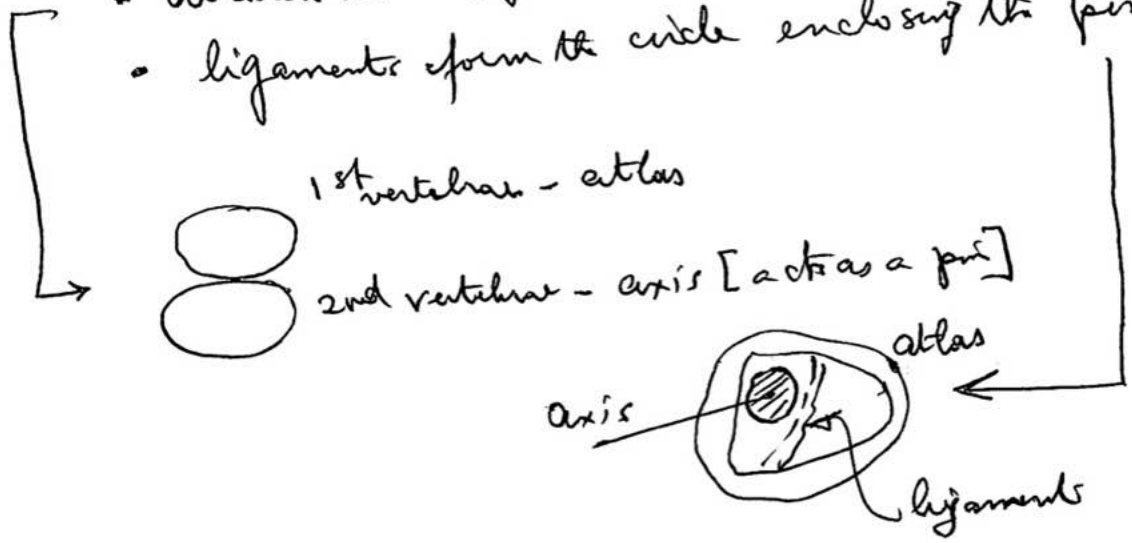 • ligaments form the circle enclosing the
1st vertebrae - atlas
2nd vertebrae - axis [acts as a pin]
atlas
axis
ligaments